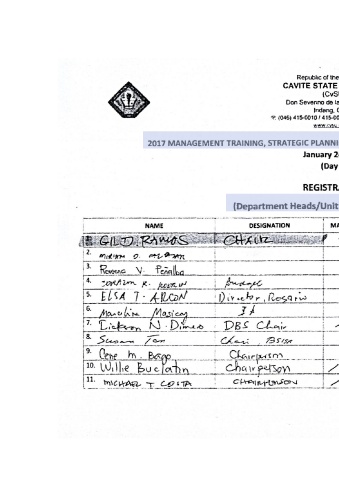 Republic of the
CAVITE STATE
(CvS
Don Severino de la
Indang, C
(046) 415-0010 / 415-00
www.cvsu.
2017 MANAGEMENT TRAINING, STRATEGIC PLANNI
January 2
(Day
REGISTRA
(Department Heads/Unit
NAME DESIGNATION MA
GIL D. RAMOS CHAIR
2.
3. V. Peñalba
4. Budget
5. ELSA T. ALCON Director, Rosario
6.
7. N. Dimero DBS Chair
8. Susan Tan Chair, BSBA
9. Cene M. Bapp Chairperson
10. Willie Buclatin Chairperson
11. MICHAEL T COSTA CHAIRPERSON